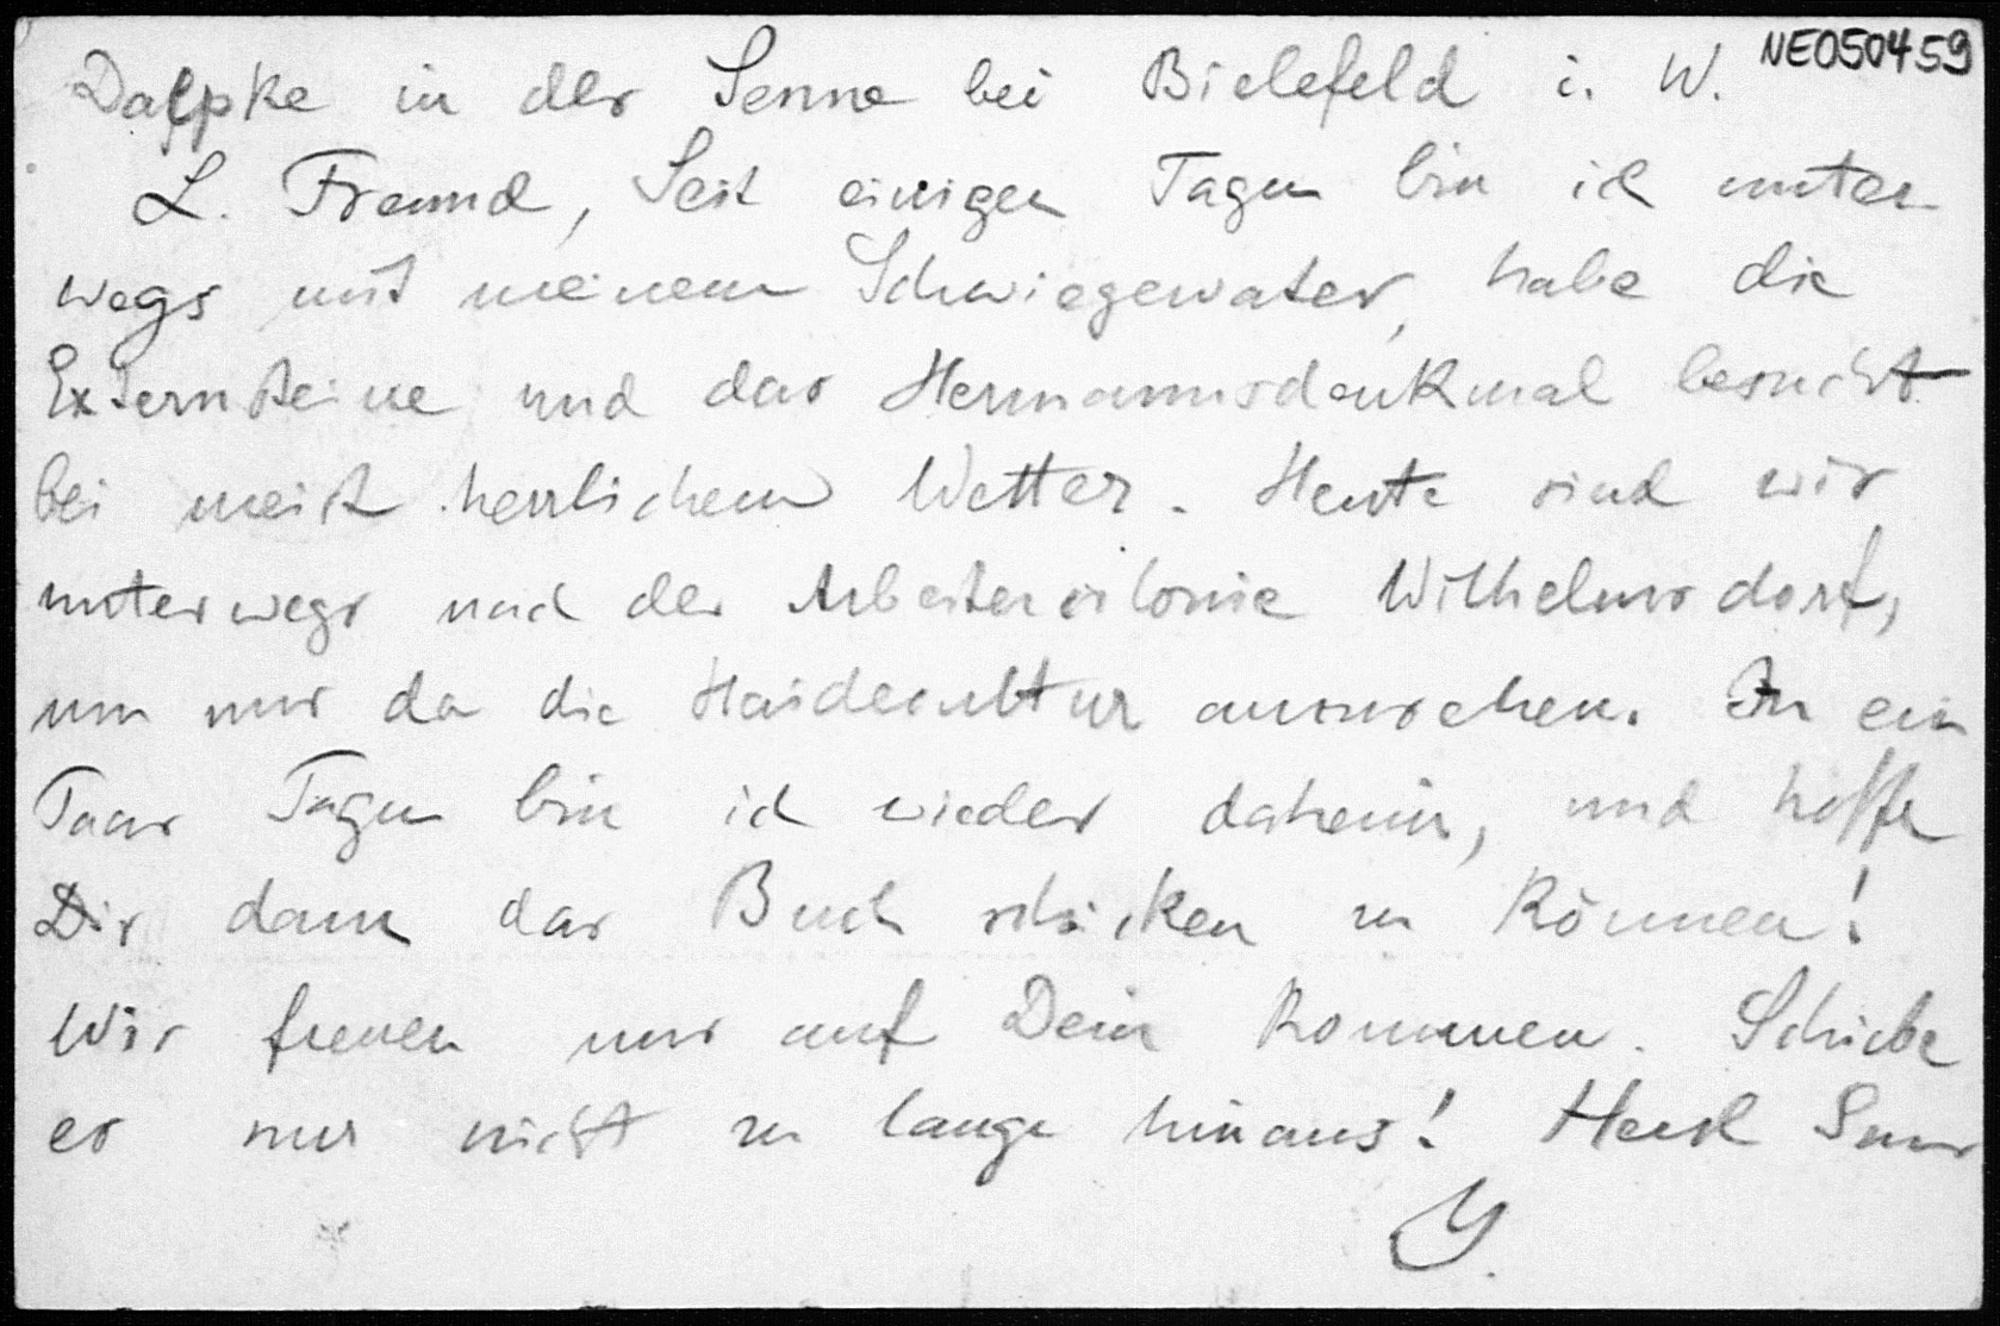 NE050459
Dalpke in der Senne bei Bielefeld i. W.
L. Freund, Seit einigen Tagen bin ich unter
wegs mit meinem Schwiegervater, habe die
Externsteine und das Hermannsdenkmal besucht
bei meist herrlichem Wetter. Heute sind wir
unterwegs nach der Arbeitercolonie Wilhelmsdorf,
um uns da die Haidecultur anzusehen. In ein
Paar Tagen bin ich wieder daheim, und hoffe
Dir dann das Buch schicken zu können!
Wir freuen uns auf Dein Kommen. Schiebe
es nur nicht zu lange hinaus! Herzl